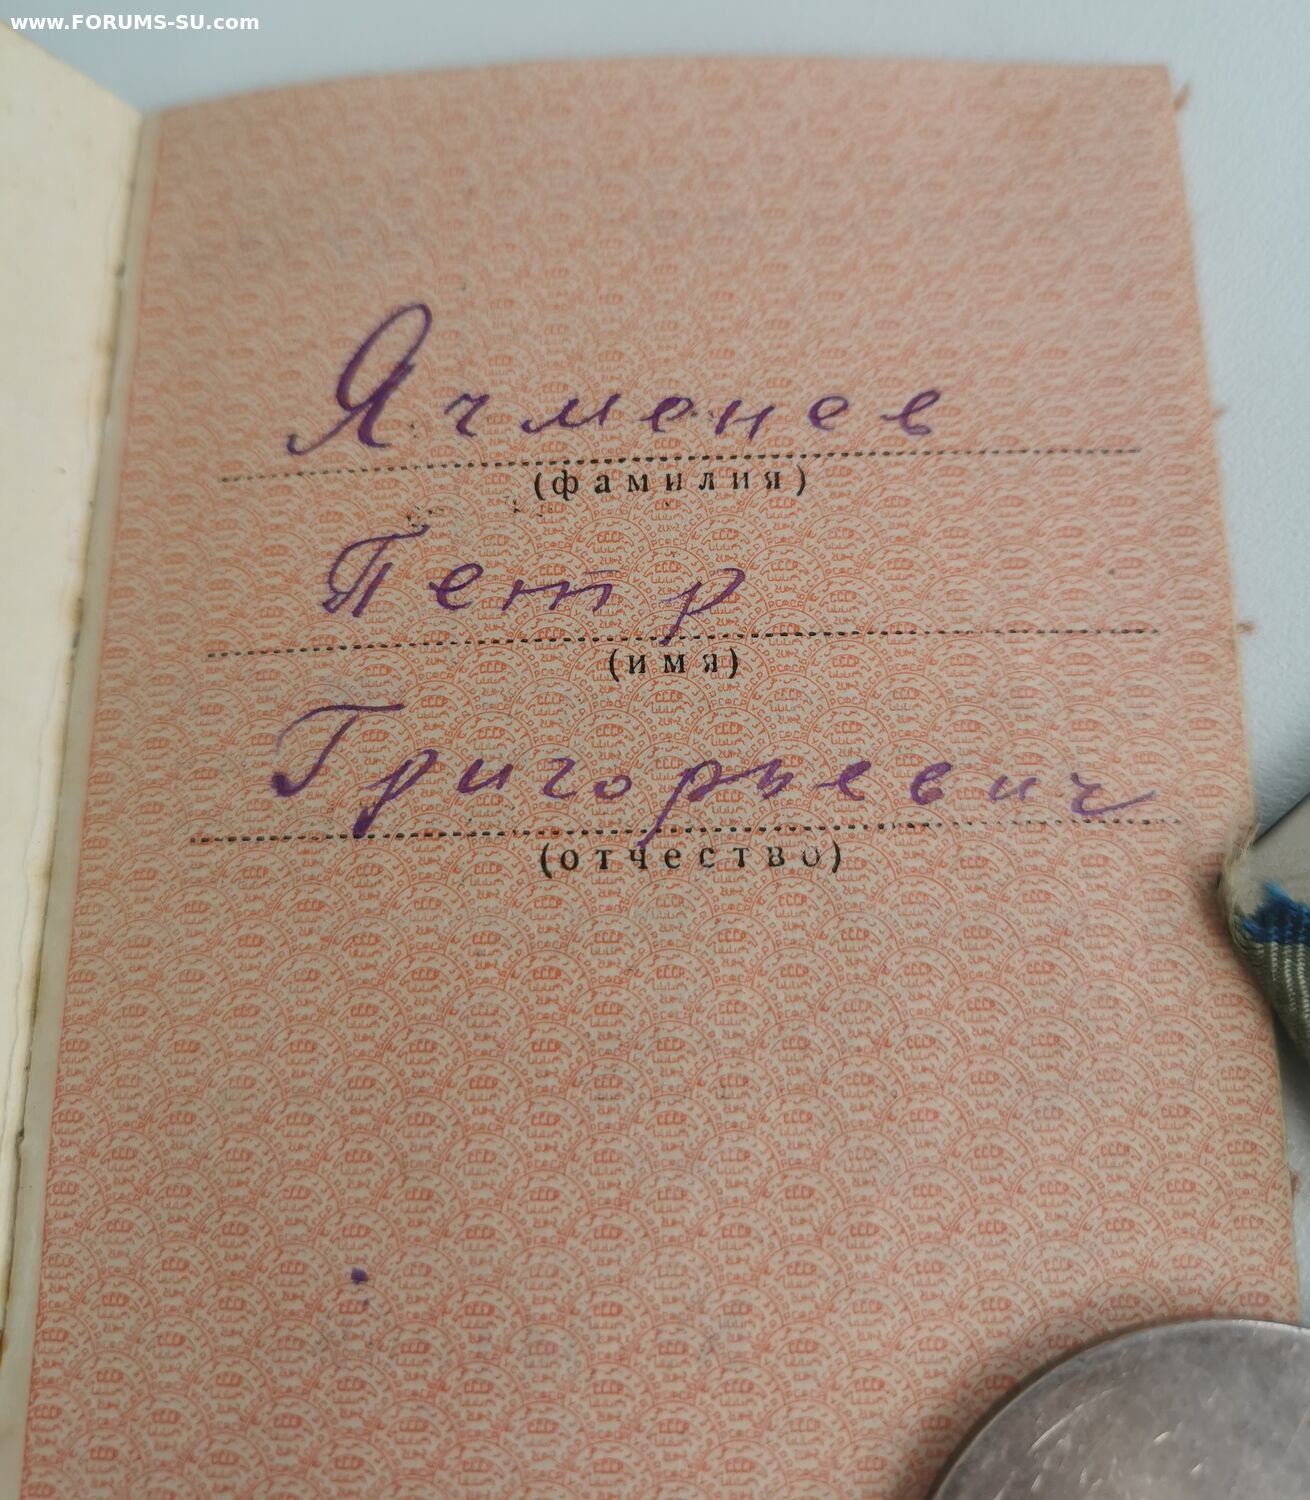 www.FORUMS-SU.com
Ячменев
(фамилия)
Петр
(имя)
Григорьевич
(отчество)